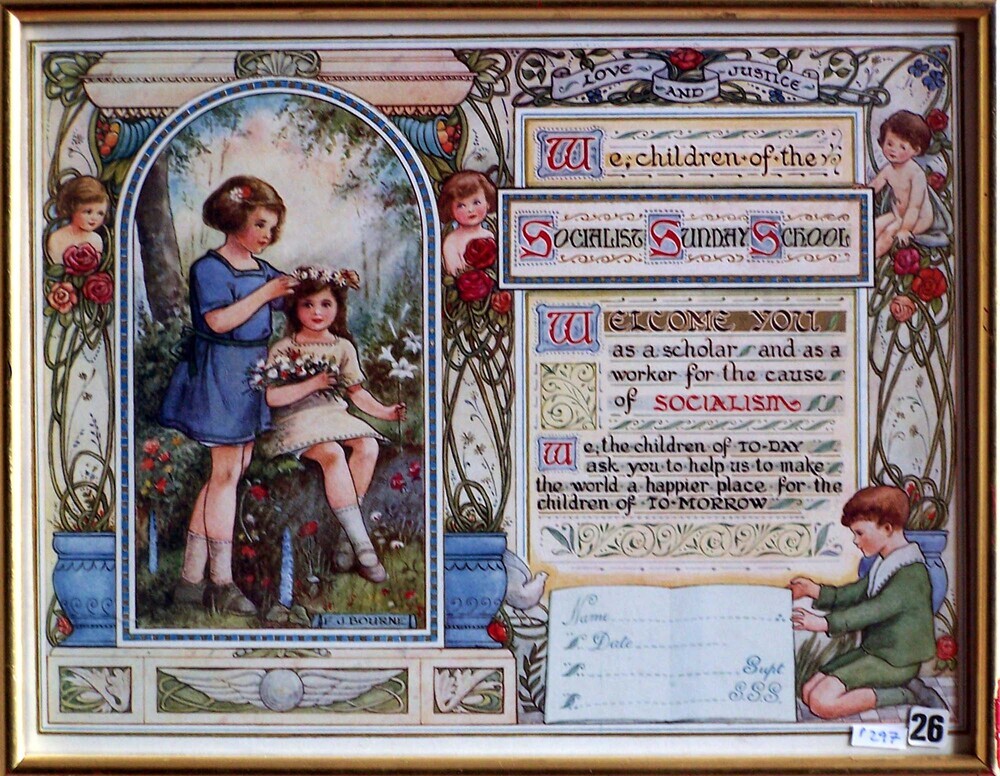 LOVE AND JUSTICE
We, children of the
SOCIALIST SUNDAY SCHOOL
WELCOME YOU
as a scholar and as a
worker for the cause
of SOCIALISM
We, the children of TO-DAY
ask you to help us to make
the world a happier place for the
children of TO-MORROW
F. J. BOURNE
Name
Date
Supt.
S.S.S.
P297
26